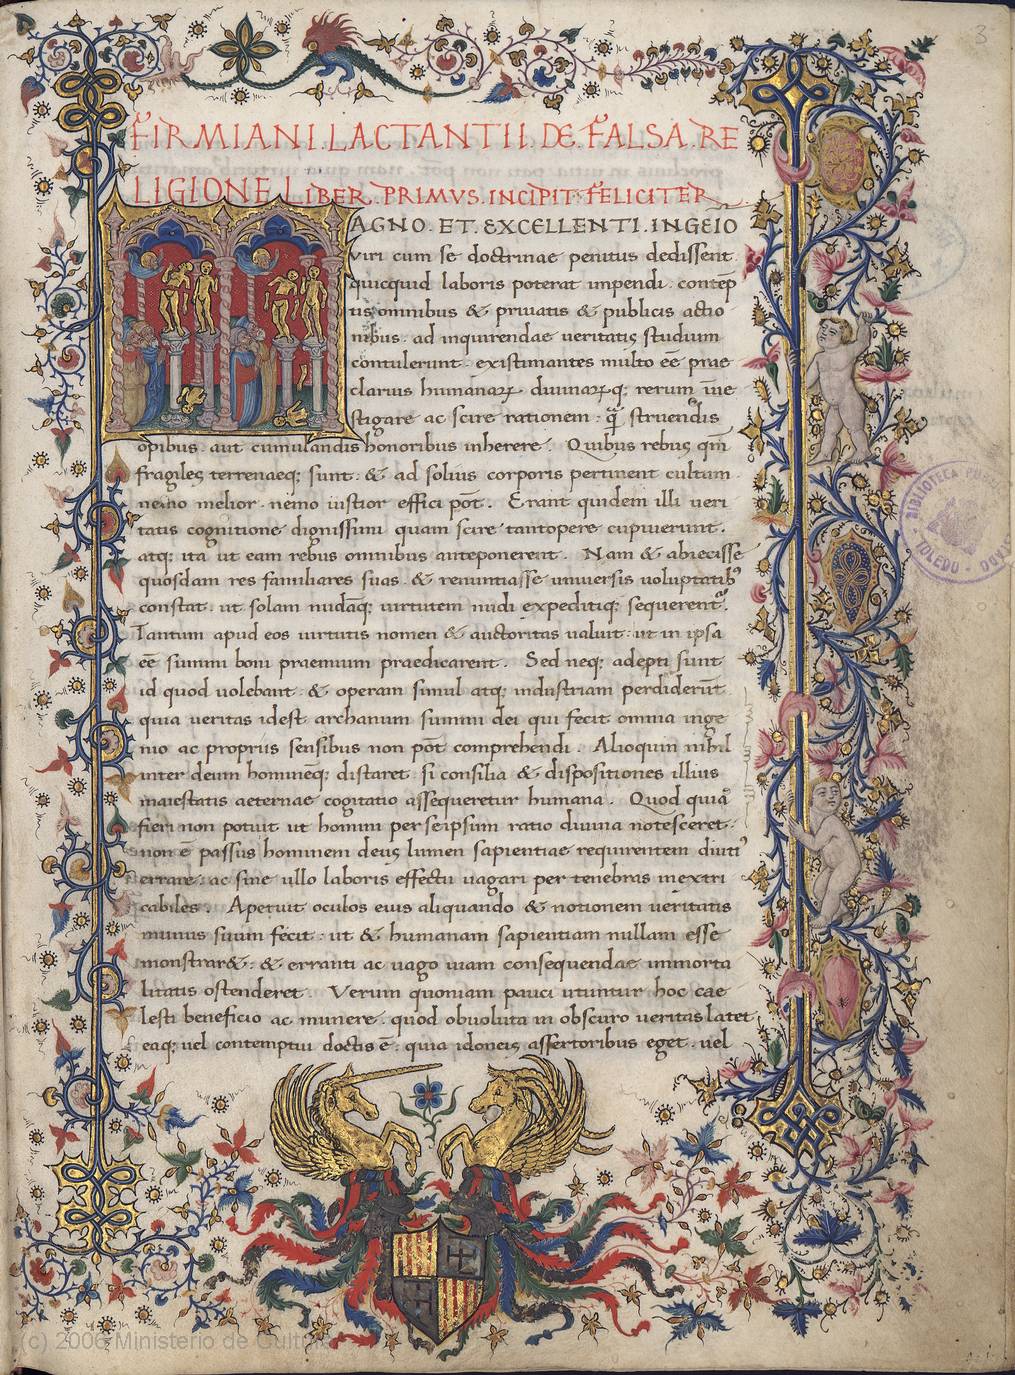 3
FIRMIANI. LACTANTII. DE. FALSA. RE
LIGIONE LIBER. PRIMVS. INCIPIT. FELICITER
AGNO. ET. EXCELLENTI. INGEIO
viri cum se doctrinae penitus dedissent.
quicquid laboris poterat impendi. contēp
tis omnibus & priuatis & publicis actio
nibus. ad inquirendae veritatis studium
contulerunt. existimantes multo eē prae
clarius humanaꝝ. diuinaꝝq; rerum īue
stigare ac scire rationem: q̄ struendis
opibus. aut cumulandis honoribus inherere. Quibus rebus qm̄
fragiles terrenaeq; sunt. & ad solius corporis pertinent cultum.
nemo melior. nemo iustior effici pōt. Erant quidem illi veri
tatis cognitione dignissimi quam scire tantopere cupiuerunt.
atq; ita ut eam rebus omnibus anteponerent. Nam & abiecisse
quosdam res familiares suas. & renuntiasse uniuersis voluptatibꝰ
constat. ut solam nudāq; uirtutem nudi expeditiq; sequerent᷑.
Tantum apud eos uirtutis nomen & auctoritas ualuit: ut in ipsa
eē summi boni praemium praedicarent. Sed neq; adepti sunt
id quod uolebant. & operam simul atq; industriam perdiderūt
quia veritas idest archanum summi dei qui fecit omnia inge
nio ac propriis sensibus non pōt comprehendi. Alioquin nihil
inter deum hominēq; distaret. si consilia & dispositiones illius
maiestatis aeternae cogitatio assequeretur humana. Quod quia
fieri non potuit ut homini per seipsum ratio diuina notesceret.
non ē passus hominem deus lumen sapientiae requirentem diutiꝰ
errare: ac sine ullo laboris effectu uagari per tenebras inextri
cabiles. Aperuit oculos eius aliquando & notionem ueritatis
munus suum fecit: ut & humanam sapientiam nullam esse
monstrar&: & erranti ac uago uiam consequendae immorta
litatis ostenderet. Verum quoniam pauci utuntur hoc cae
lesti beneficio ac munere. quod obuoluta in obscuro ueritas latet
eaq; uel contemptui doctis ē: quia idoneis assertoribus eget. uel
BIBLIOTECA PU
TOLEDO
(c) 2006 Ministerio de Cultura